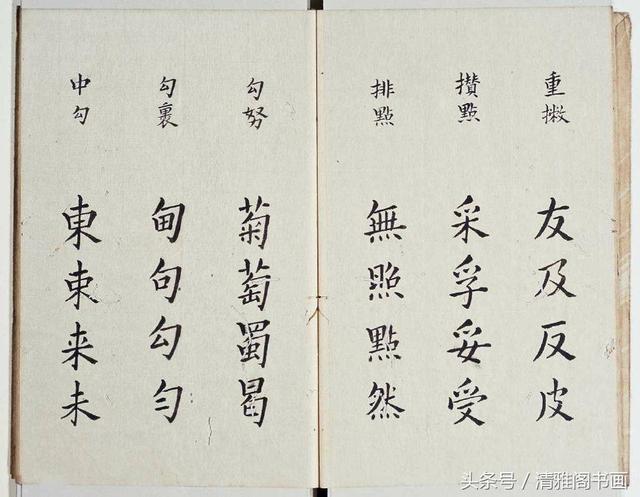 重撇
友及反皮
攢點
采孚妥受
排點
無照點然
勾努
菊萄蜀曷
勾裹
甸句勾勻
中勾
東束来未
头条号／清雅阁书画